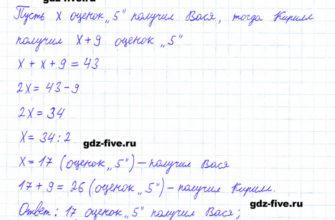 gdz-five.ru
Пусть x оценок „5" получил Вася, тогда Кирилл
получил x+9 оценок „5"
x + x + 9 = 43
2x = 43-9
2x = 34
x = 34 : 2
gdz-five.ru
x = 17 (оценок „5") – получил Вася
17 + 9 = 26 (оценок „5") – получил Кирилл.
gdz-five.ru
Ответ: 17 оценок „5" получил Вася;